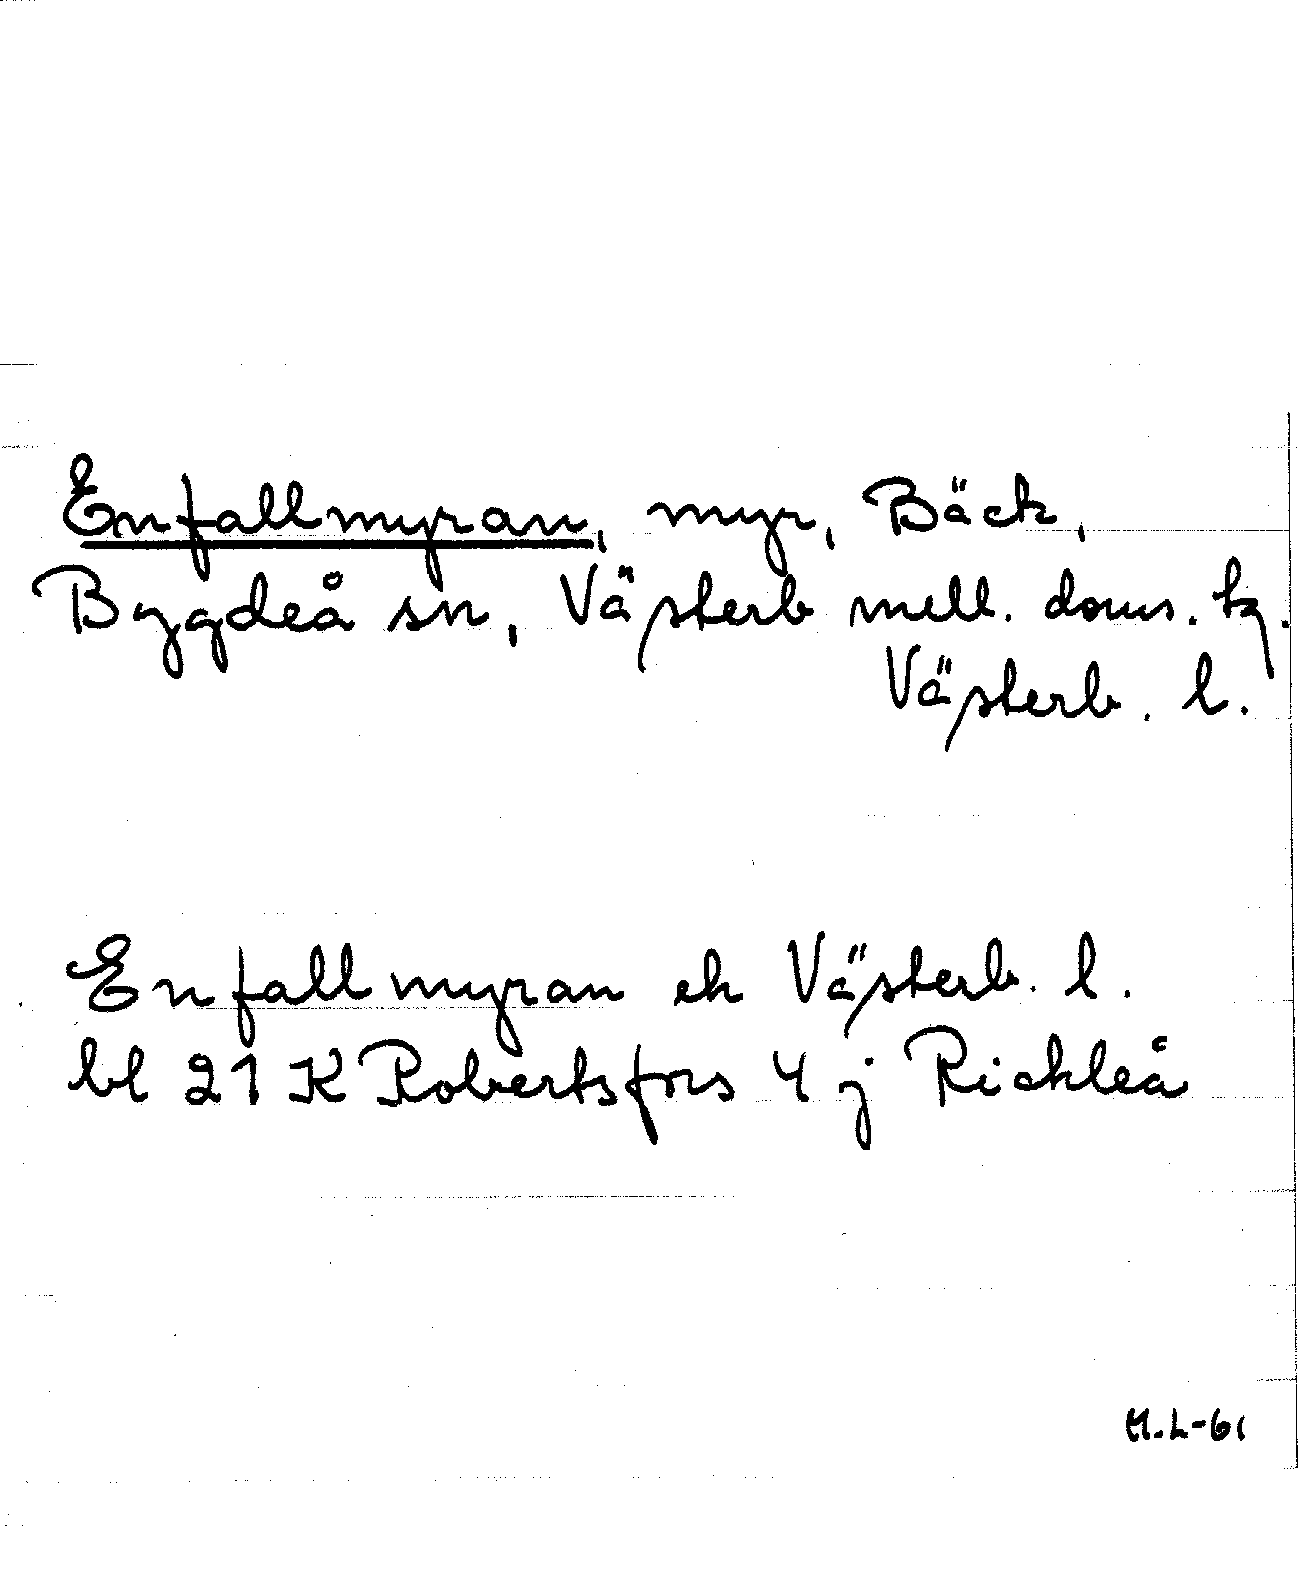 Enfallmyran, myr, Bäck,
Bygdeå sn, Västerb mell. doms. tg.
Västerb. l.
Enfallmyran ek Västerb. l.
bl 21 K Robertsfors 4 j Rickleå
M.L-61